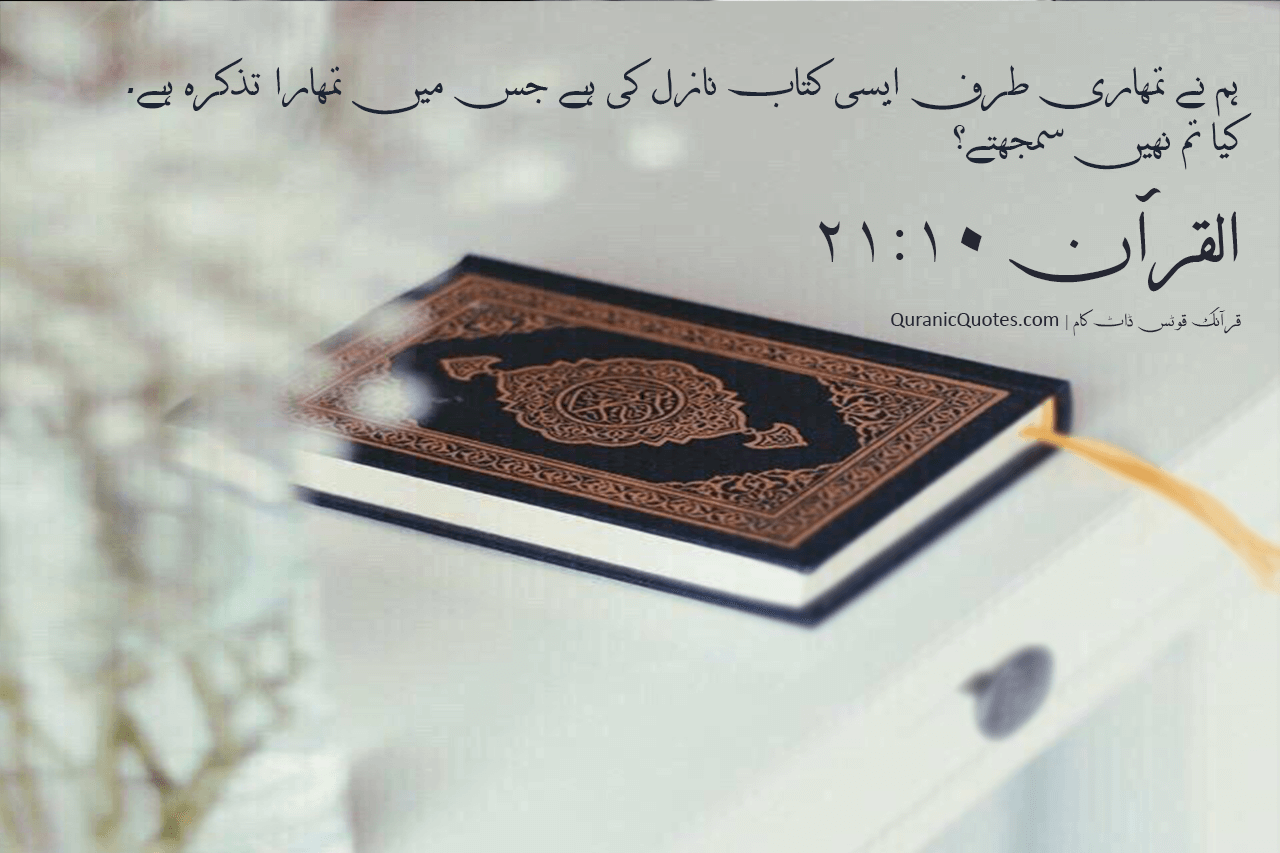 ہم نے تمھاری طرف ایسی کتاب نازل کی ہے جس میں تمھارا تذکرہ ہے.
کیا تم نھیں سمجھتے؟
القرآن ٢١:١٠
قرآنک قوٹس ڈاٹ کام | QuranicQuotes.com